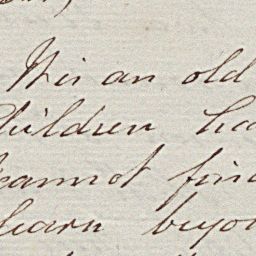 It is an old
Children ha
cannot find
learn beyo